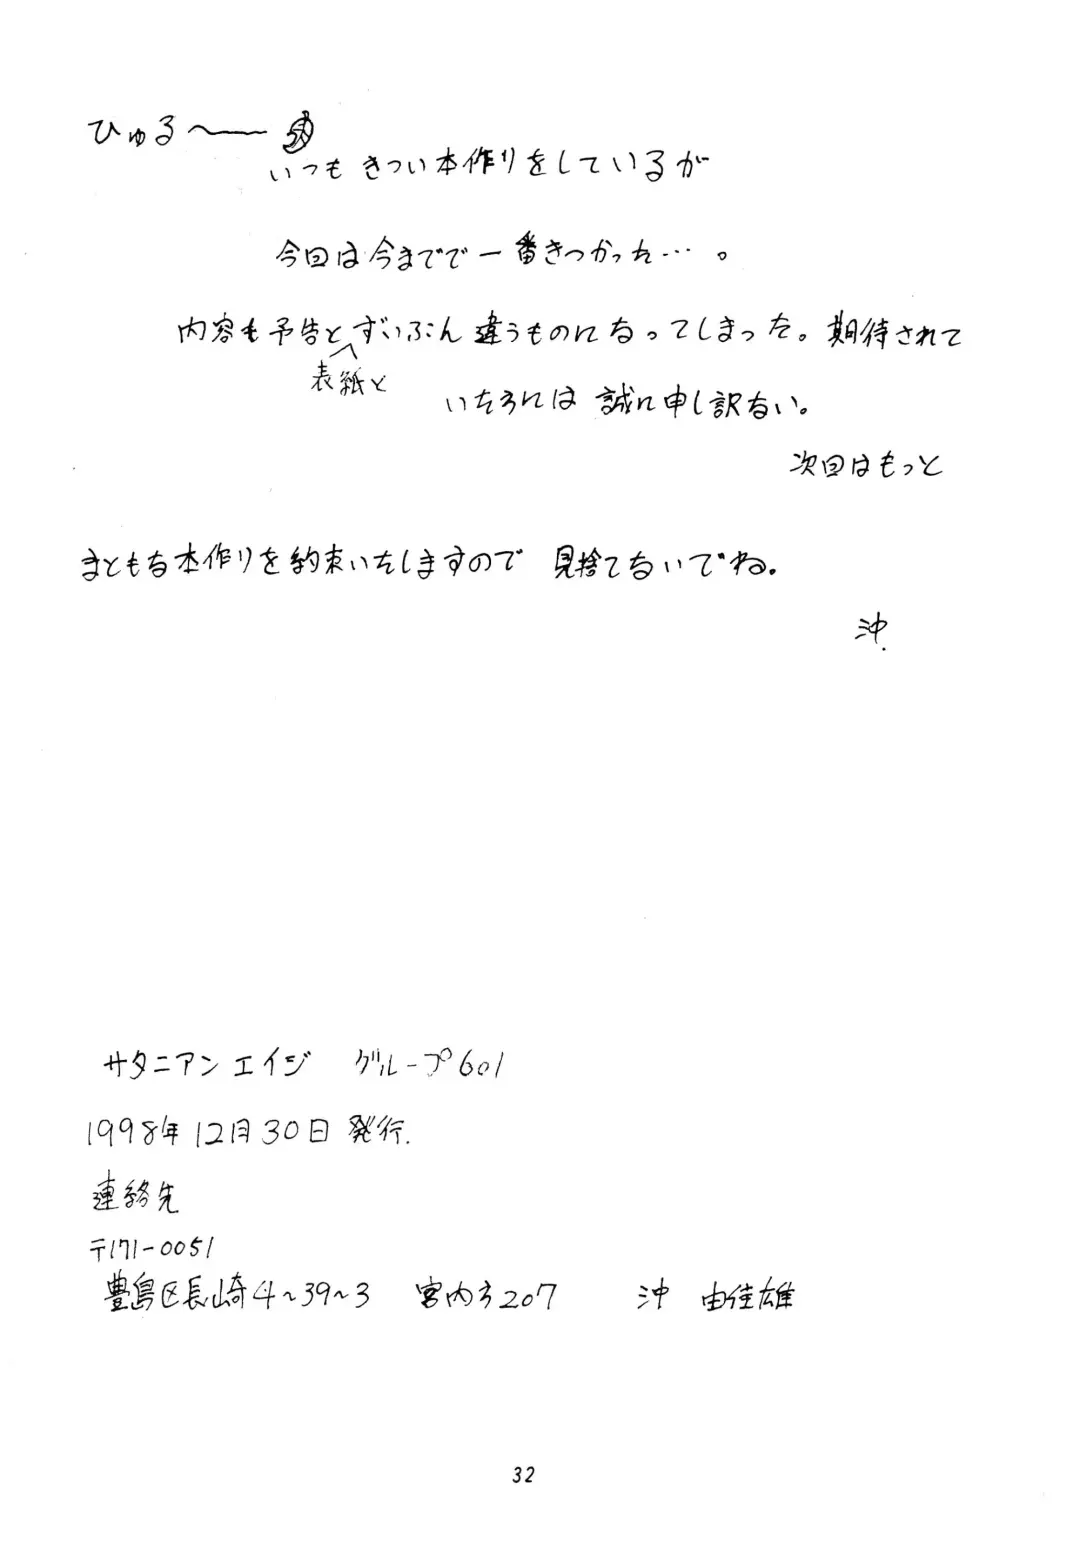 ひゅる〜──
いつも きつい本作りをしているが
今回は今までで一番きつかった…。
内容も予告とずいぶん違うものになってしまった。期待されて
表紙と
いたろには 誠に申し訳ない。
次回はもっと
まともな本作りを約束いたしますので 見捨てないでね。
沖.
サタニアンエイジ グループ601
1998年12月30日 発行.
連絡先
〒171-0051
豊島区長崎4〜39〜3 宮内方207 沖 由佳雄
32